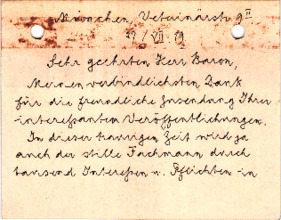 München, Veterinärstr. 9 II
22/VII. 19
Sehr geehrter Herr Baron,
Meinen verbindlichsten Dank
für die freundliche Zusendung Ihrer
interessanten Veröffentlichungen.
In dieser traurigen Zeit wird ja
auch der stille Fachmann durch
tausend Interessen u. Pflichten in